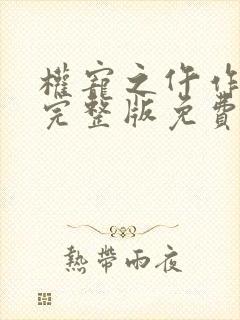 權寵之仵作
完整版免費
熱帶雨夜